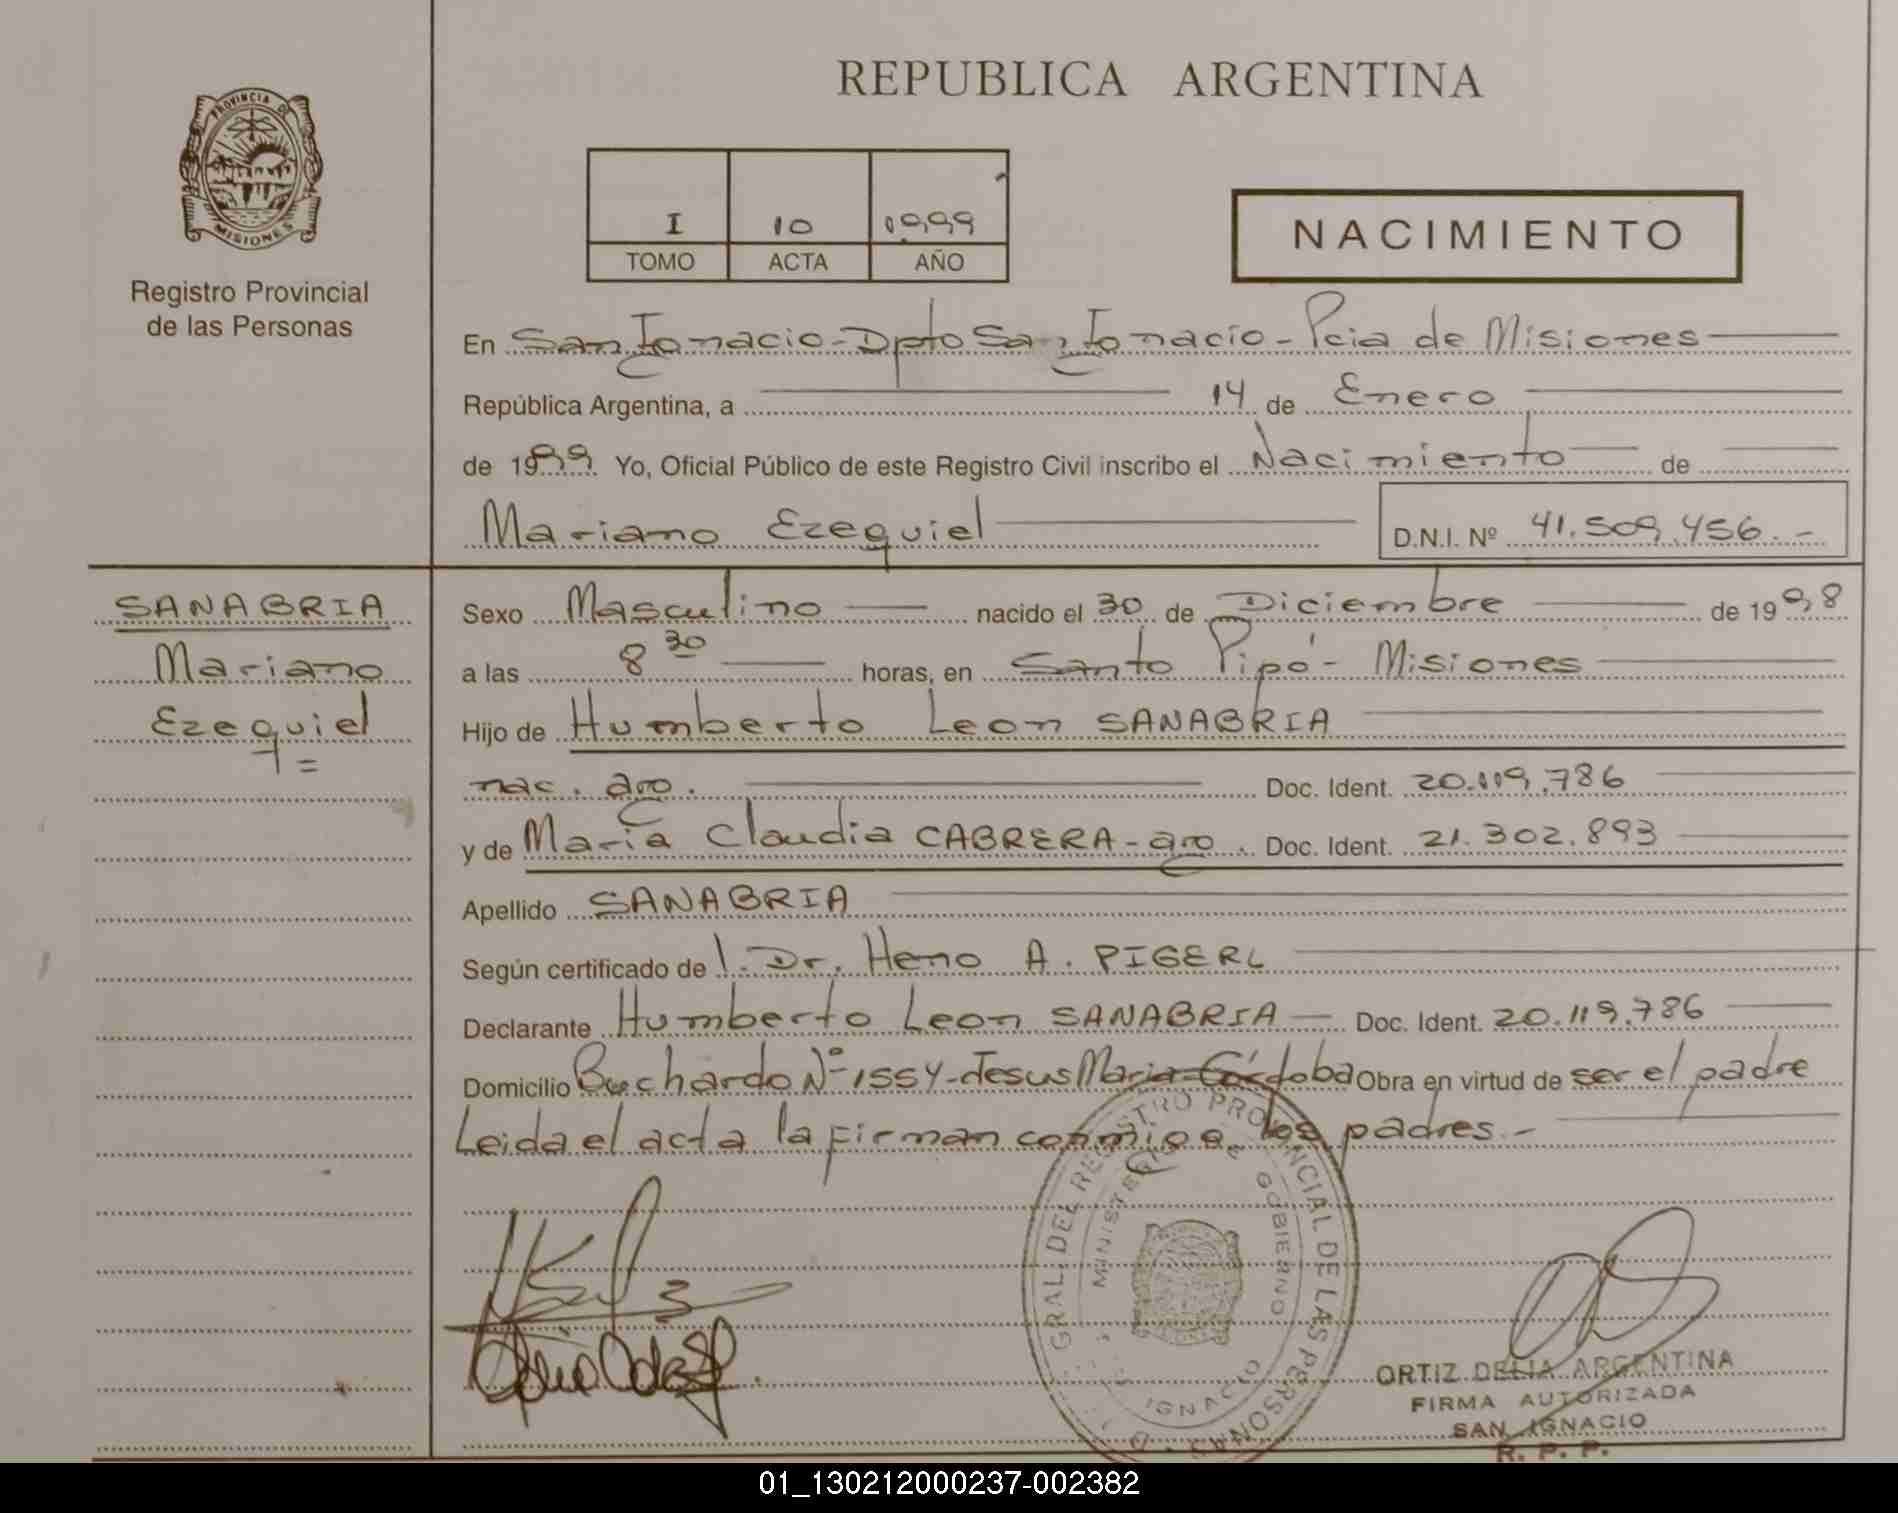 REPUBLICA ARGENTINA
PROVINCIA DE
MISIONES
Registro Provincial
de las Personas
I 10 1999
TOMO ACTA AÑO
NACIMIENTO
En San Ignacio - Dpto San Ignacio - Pcia de Misiones
República Argentina, a 14 de Enero
de 1999 Yo, Oficial Público de este Registro Civil inscribo el Nacimiento de
Mariano Ezequiel D.N.I. Nº 41.509.456.-
SANABRIA
Mariano
Ezequiel =
Sexo Masculino nacido el 30 de Diciembre de 1998
a las 8 30 horas, en Santo Pipó - Misiones
Hijo de Humberto Leon SANABRIA
nac. arg. Doc. Ident. 20.119.786
y de María Claudia CABRERA - arg. Doc. Ident. 21.302.893
Apellido SANABRIA
Según certificado de Dr. A. PIGERL
Declarante Humberto Leon SANABRIA Doc. Ident. 20.119.786
Domicilio Buchardo Nº 1554 - Jesus Maria - Córdoba Obra en virtud de ser el padre
Leida el acta la firman conmigo los padres.-
GRAL. DEL REGISTRO PROVINCIAL DE LAS PERSONAS
MINISTERIO GOBIERNO
S. IGNACIO
ORTIZ DELIA ARGENTINA
FIRMA AUTORIZADA
SAN IGNACIO
R. P. P.
01_130212000237-002382